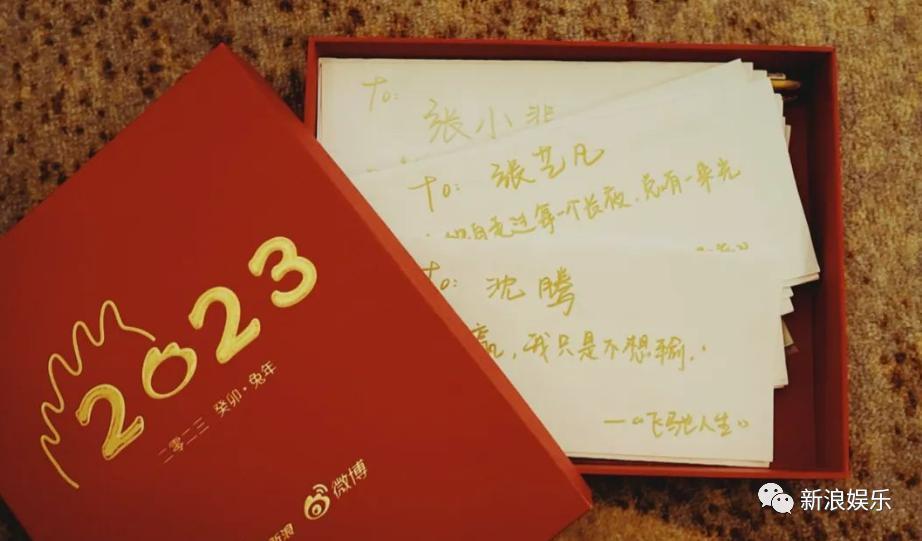 To:
张小非
To: 张艺凡
独自走过每一个长夜，总有一束光
To: 沈腾
赢，我只是不想输。
——《飞驰人生》
2023
二零二三 癸卯·兔年
新浪 微博
新浪娱乐